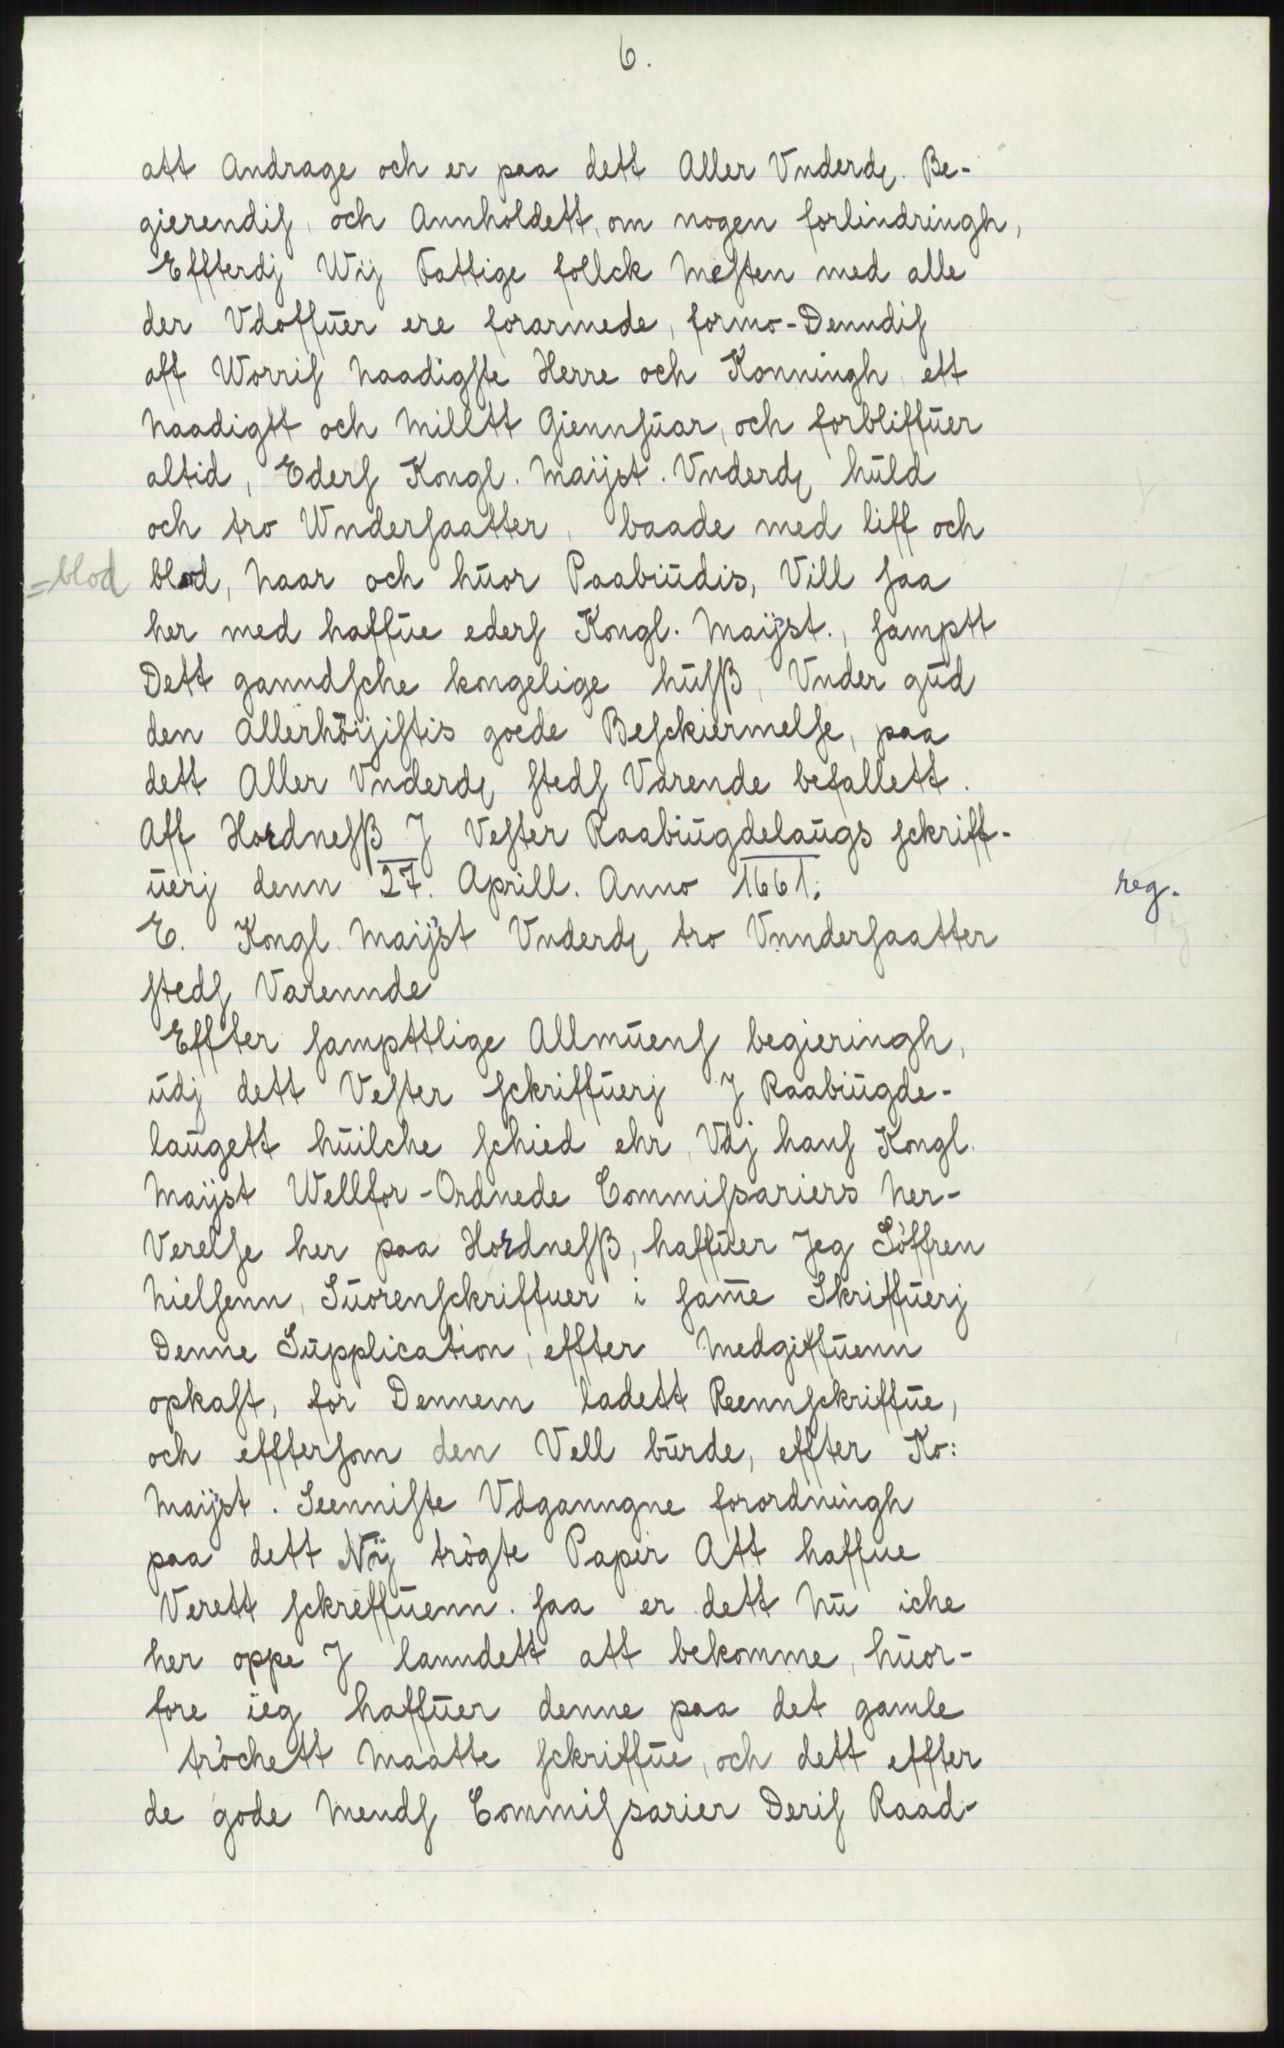 6.
att Andrage och er paa dett Aller Vnderdꝭ. Be-
gierendiſ, och Annholdett, om nogen forlindringh,
Effterdj Wij Fattige follck meſten med alle
der Vdoffuer ere forarmede, formo-Denndiſ
aff Worriſ Naadigſte Herre och Konningh, ett
Naadigtt och Milltt Giennſuar, och forbliffuer
altid, Ederſ Kongl. Maijst. Vnderdꝭ huld
och tro Wnderſaatter, baade med liff och
=blod blod, Naar och huor Paabiudis, Vill ſaa
her med haffue ederſ Kongl. Maijst., ſamptt
Dett ganndſche kongelige huſß, Vnder gud
den Allerhöijſtis goede Beſckiermelſe, paa
dett Aller Vnderdꝭ ſtedſ Varende befallett.
Aff Hordneſß J Veſter Raabiugdelaugs ſckriff-
uerj denn 27. Aprill. Anno 1661. reg.
E. Kongl. Maijst Vnderdꝭ tro Vnnderſaatter
ſtedſ Varennde
Effter ſampttlige Allmuenſ begieringh,
udj dett Veſter ſckriffuerj J Raabiugde-
laugett huilche ſchied ehr, Vdj hanſ Kongl.
Maijst Wellfor-Ordnede Commiſsariers Ner-
Verelſe her paa Hordneſß, haffuer Jeg Söffren
Nielſenn, Suorenſckriffuer i ſam̅e Skriffuerj
Denne Supplication, effter Medgiffuenn
opkaſt, for Dennem ladett Reennſckriffue,
och efftersſom den Vell burde, effter Ko:
Maijst. Seenniſte Vdganngne forordningh
paa dett Nÿ trögte Papir Att haffue
Verett ſckreffuenn. ſaa er dett Nu iche
her oppe J lanndett att bekomme, huor-
fore ieg haffuer denne paa det gamle
tröchett Maatte ſckriffue, och dett effter
de gode Mendſ Commiſsarier Deriſ Raad-